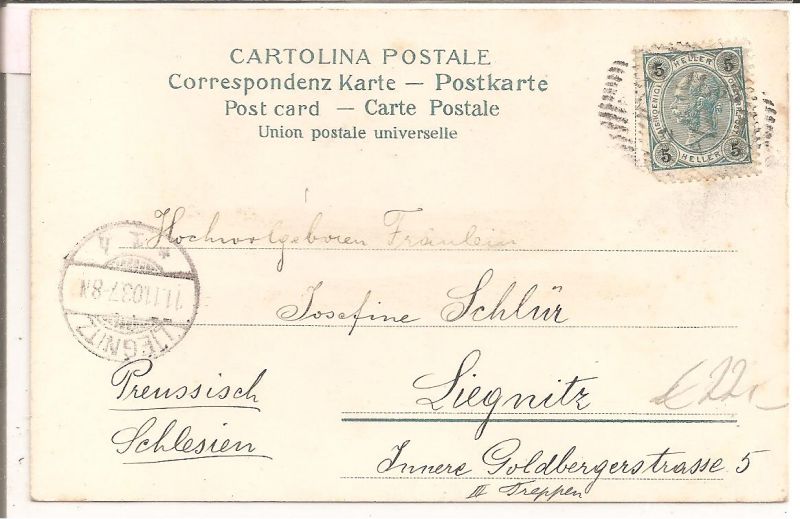 CARTOLINA POSTALE
Correspondenz Karte — Postkarte
Post card — Carte Postale
Union postale universelle
5 HELLER 5
5 HELLER 5
Hochwolgeboren Fräulein
Josefine Schlür
LIEGNITZ
11.11.03.7-8N.
* 1 h
Preussisch
Schlesien
Liegnitz
Innere Goldbergerstrasse 5
III Treppen
€ 22,-